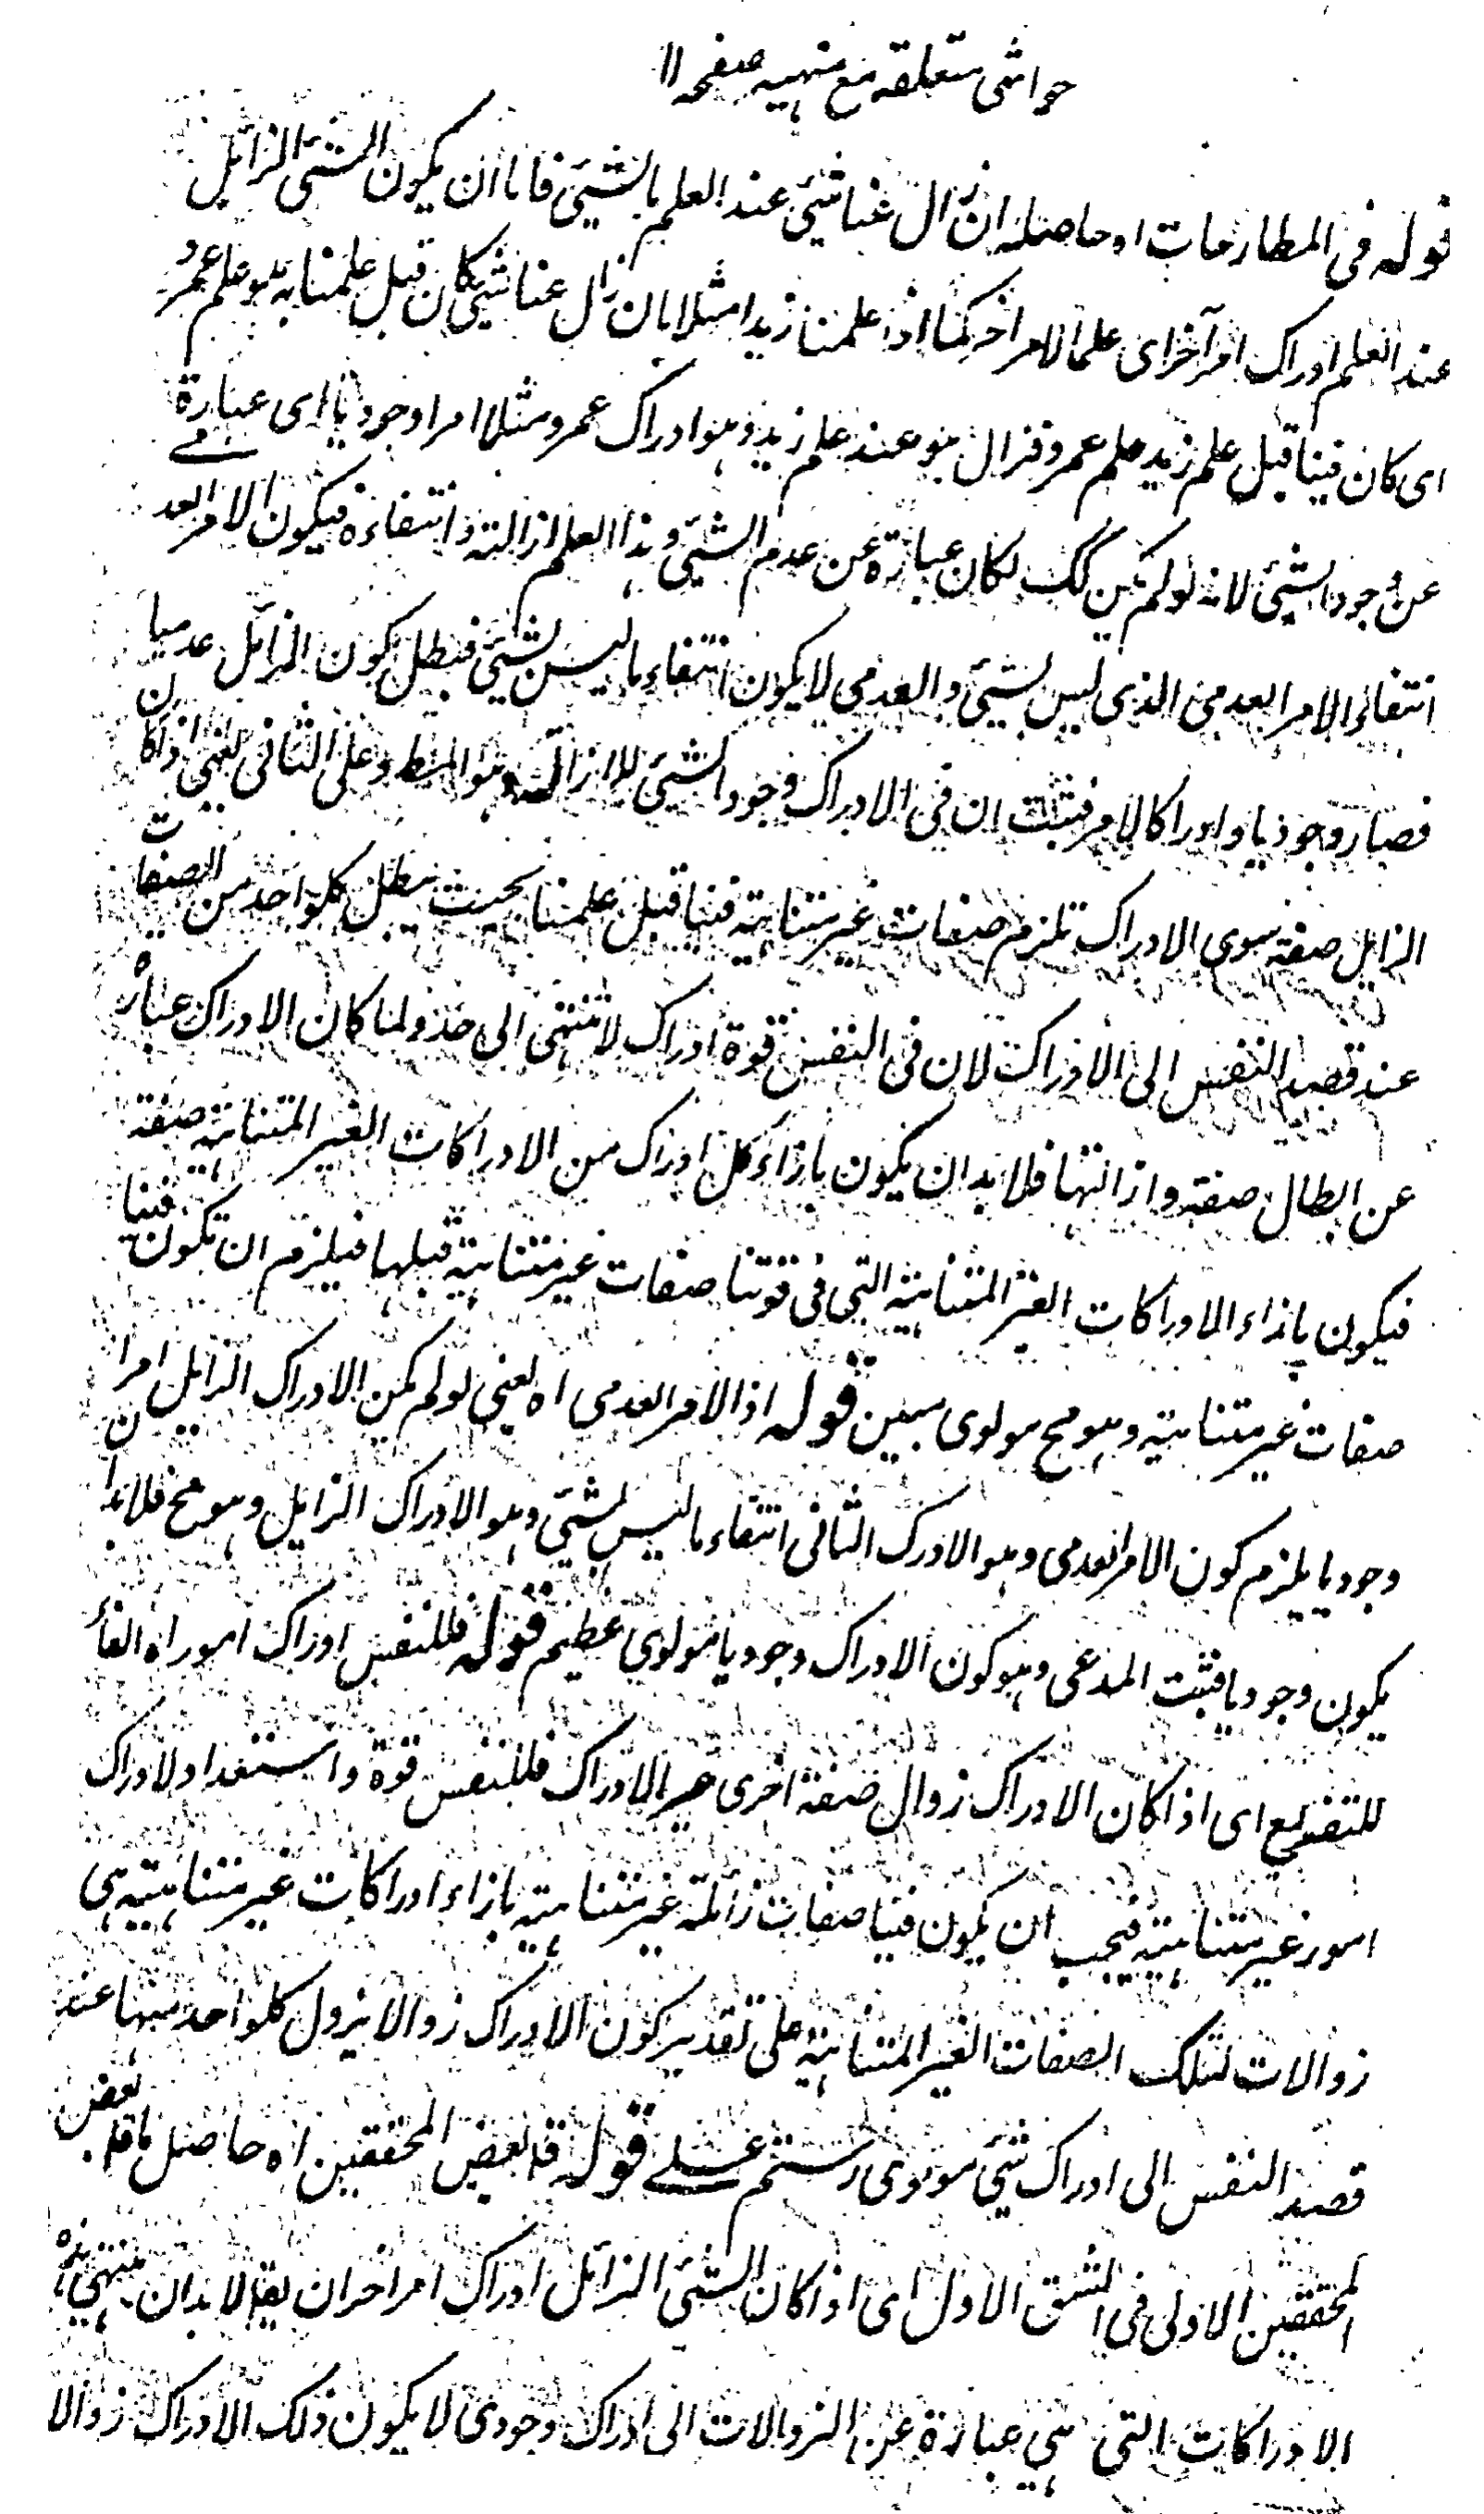 حواشی متعلقه مع منهیه صفحه ١١
قوله فی المطارحات اه حاصله ان زال عنا شیٔ عند العلم بالشیٔ فاما ان یکون الشیٔ الزائل
عند العلم ادراک امر آخر ای علما لامر اخر کما اذا علمنا زیدا مثلا بان زال عنا شیٔ کان قبل علمنا به هو علم عمرو
ای کان فینا قبل علم زید علم عمرو فزال هو عند علم زید و هو ادراک عمرو مثلا امرا وجودیا ای عبارة
عن وجود الشیٔ لانه لو لم یکن کک لکان عبارة عن عدم الشیٔ و هذا العلم ازالته و انتفاءه فیکون الامر العدمی
انتفاء الامر العدمی الذی لیس بشیٔ و العدمی لا یکون انتفاء ما لیس بشیٔ فبطل کون الزائل عدمیا
فصار وجودیا و ادراکا لامر فثبت ان فی الادراک وجود الشیٔ لا ازالته و هو المط و علی الثانی یعنی اذا کان
الزایل صفة سوی الادراک تلزم صفات غیر متناهیة فینا قبل علمنا بحیث یبطل کلواحد من الصفات
عند قصد النفس الی الادراک لان فی النفس قوة ادراک لا تنتهی الی حد و لما کان الادراک عبارة
عن ابطال صفة و ازالتها فلا بد ان یکون بازاء کل ادراک من الادراکات الغیر المتناهیة صفة
فیکون بازاء الادراکات الغیر المتناهیة التی فی قوتنا صفات غیر متناهیة قبلها فیلزم ان تکون فینا
صفات غیر متناهیة و هو مح مولوی مبین قوله اذ الامر العدمی اه یعنی لو لم یکن الادراک الزایل امرا
وجودیا یلزم کون الامر العدمی و هو الادرک الثانی انتفاء ما لیس بشیٔ و هو الادراک الزایل و هو مح فلا بد ان
یکون وجودیا فثبت المدعی و هو کون الادراک وجودیا مولوی عظیم قوله فللنفس ادراک امور اه الفاء
للتفریع ای اذا کان الادراک زوال صفة اخری غیر الادراک فللنفس قوة و استعداد لادراک
امور غیر متناهیة فیجب ان یکون فینا صفات زائلة غیر متناهیة بازاء ادراکات غیر متناهیة هی
زوالات لتلک الصفات الغیر المتناهیة علی تقدیر کون الادراک زوالا یزول کلواحد منها عند
قصد النفس الی ادراک شیٔ مولوی رستم علی قوله قا بعض المحققین اه حاصل ما قا بعض
المحققین الاولی فی الشق الاول ای اذا کان الشیٔ الزائل ادراک امر اخر ان یقا لا بد ان ینتهی هذه
الادراکات التی هی عبارة عن الزوالات الی ادراک وجودی لا یکون ذلک الادراک زوالا